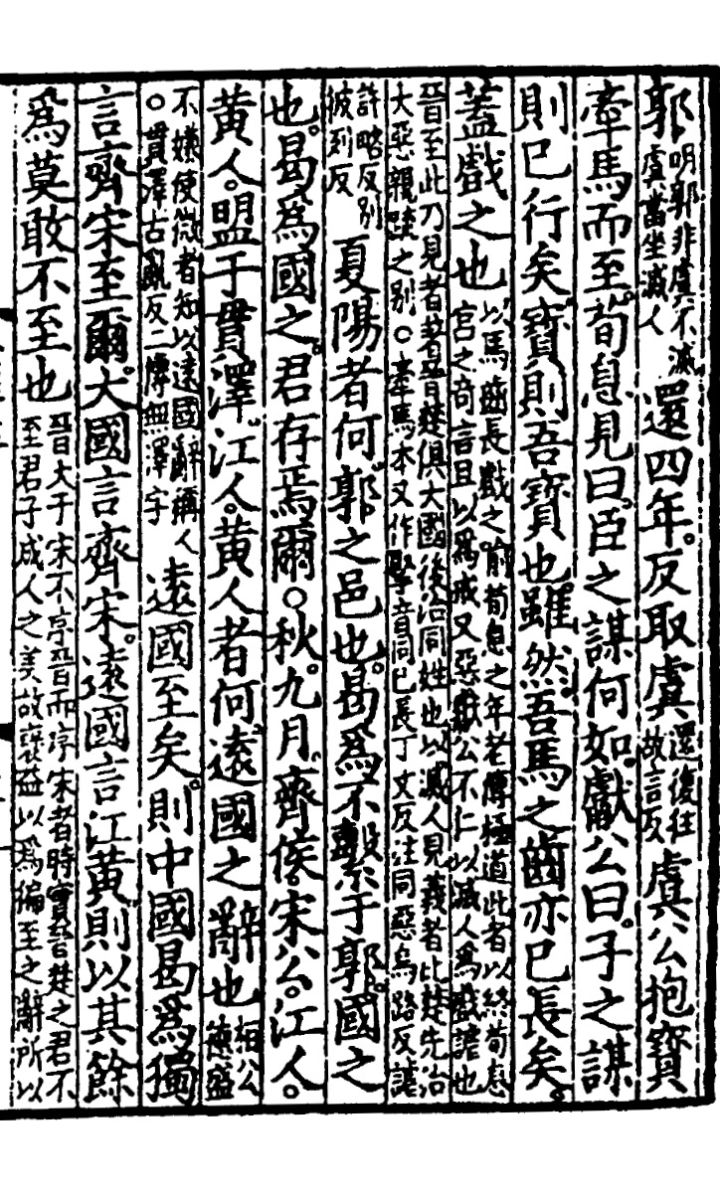 郭明郭非虞不滅虞當坐滅人還四年。反取虞還復往故言反虞公抱寶
牽馬而至。荀息見曰。臣之謀何如。獻公曰。子之謀
則已行矣。寶則吾寶也。雖然。吾馬之齒亦已長矣。
蓋戲之也以馬齒長戲之。喻荀息之年老傳極道此者以終荀息宮之奇言且以為戒又惡獻公不仁以滅人為戲謔也
晉至此乃見者著晉楚俱大國後治同姓也以滅人見義者比楚先治大惡親疎之別○牽馬本又作掔音同已長丁丈反注同惡烏路反謔
許略反別彼列反 夏陽者何。郭之邑也。曷為不繫于郭。國之
也。曷為國之。君存焉爾○秋。九月。齊侯。宋公。江人。
黃人。盟于貫澤。江人。黃人者何。遠國之辭也桓公德盛
不嫌使微者知以遠國辭稱人○貫澤古亂反二傳無澤字 遠國至矣。則中國曷為獨
言齊宋至爾。大國言齊宋。遠國言江黃。則以其餘
為莫敢不至也晉大于宋不序晉而序宋者時實晉楚之君不至君子成人之美故襃益以為徧至之辭所以